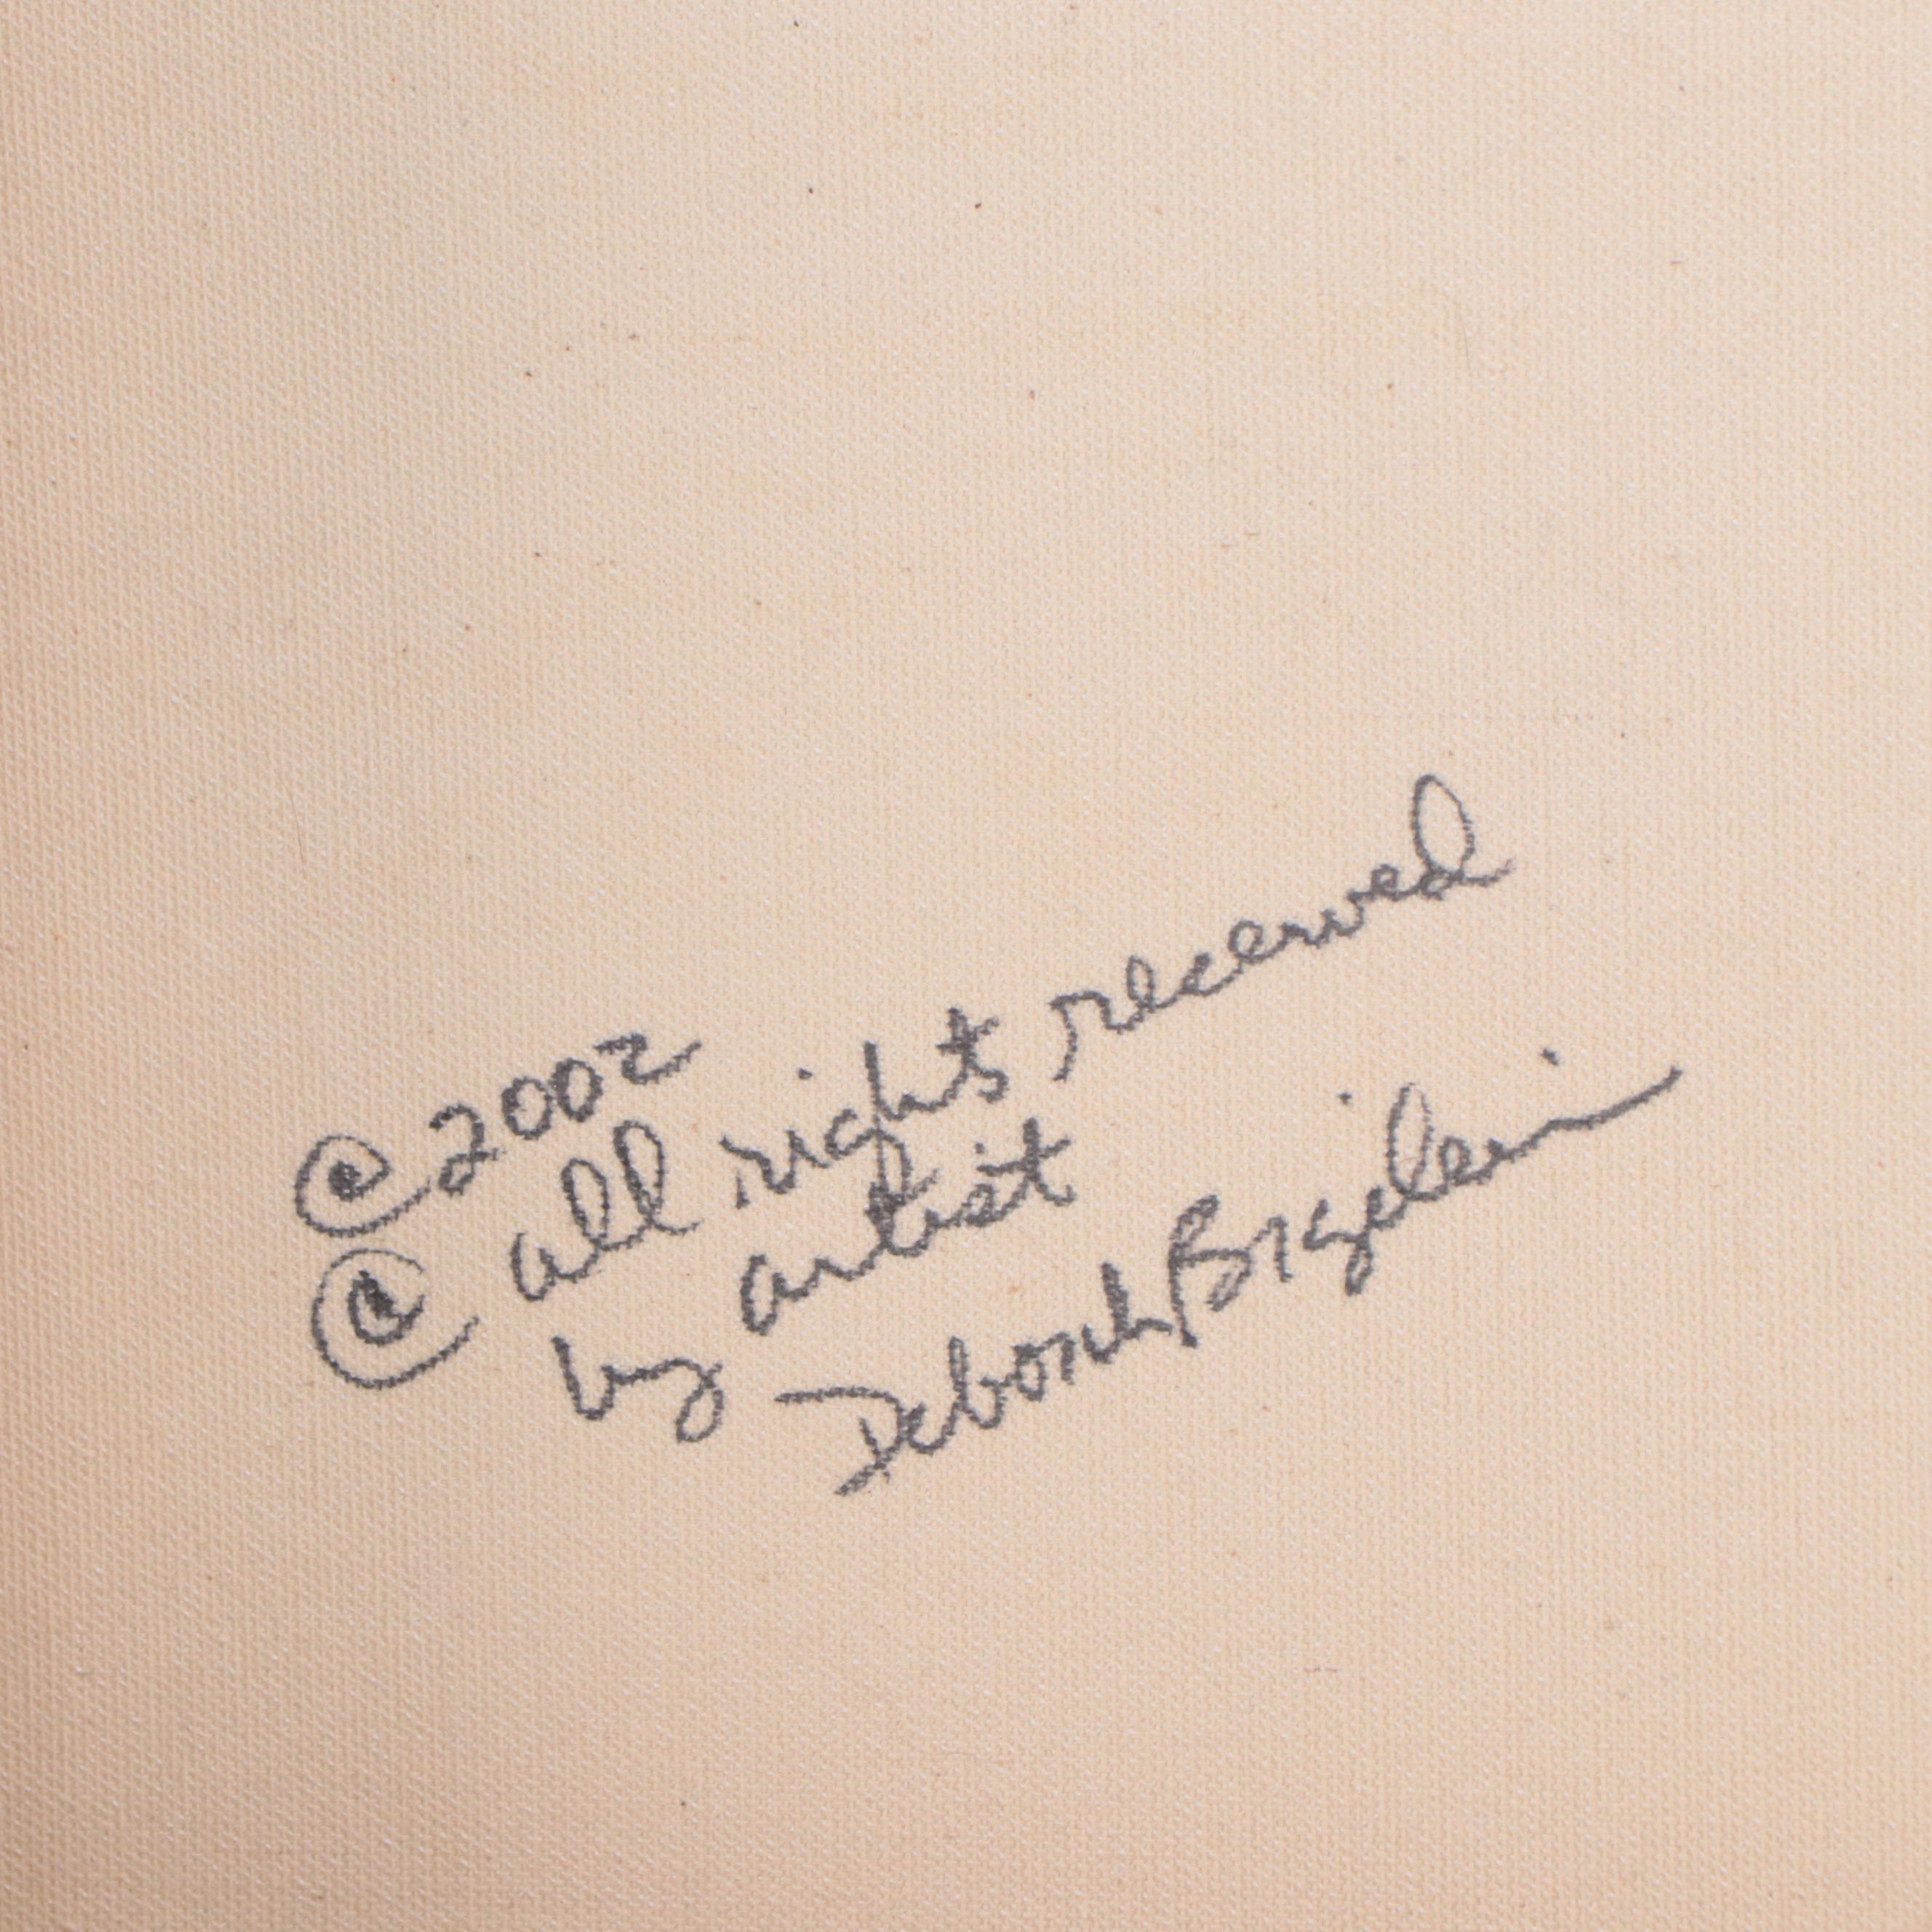 © 2002
© all rights reserved
by artist
Deborah Brigleri